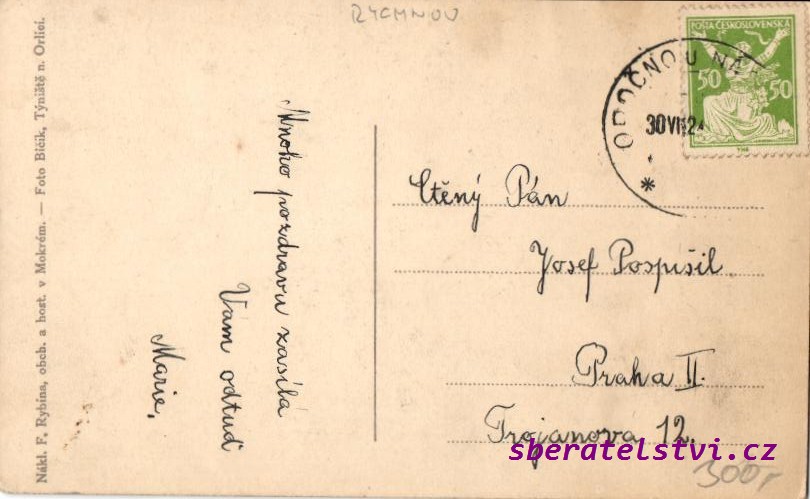 RYCHNOV
POŠTA ČESKOSLOVENSKÁ
50 50
OPOČNO U NÁ
30 VII 24
Mnoho pozdravu zasílá
Vám odtuď
Marie,
Ctěný Pán
Josef Pospíšil.
Praha II.
Trojanova 12.
Nákl. F. Rybína, obch. a host. v Mokrém. — Foto Bičík, Týniště n. Orlicí.
sberatelstvi.cz
300,-